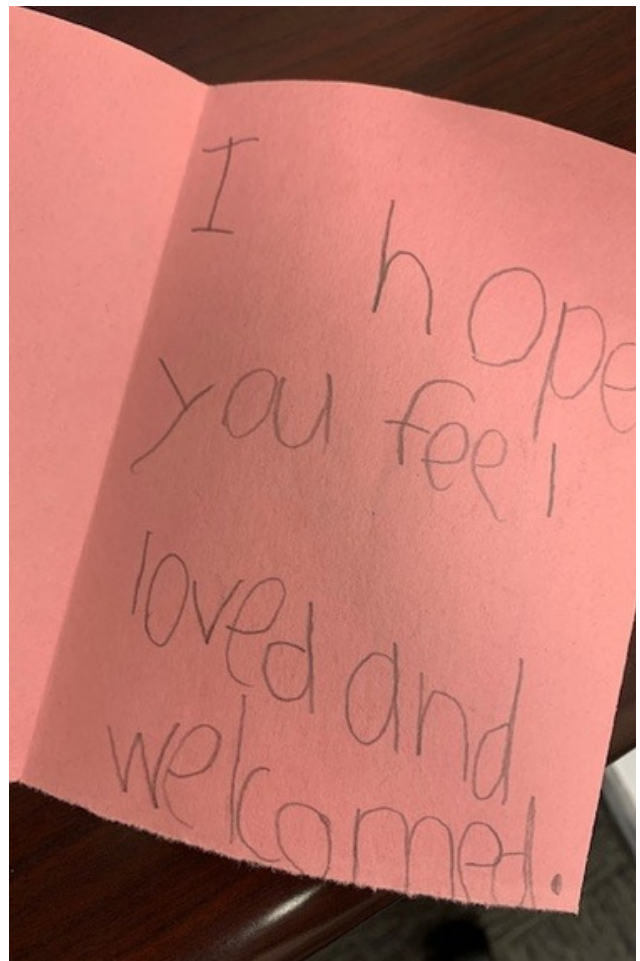 I hope
you feel
loved and
welcomed.